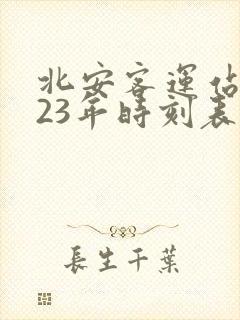 北安客運佔
23年時刻表
長生千葉